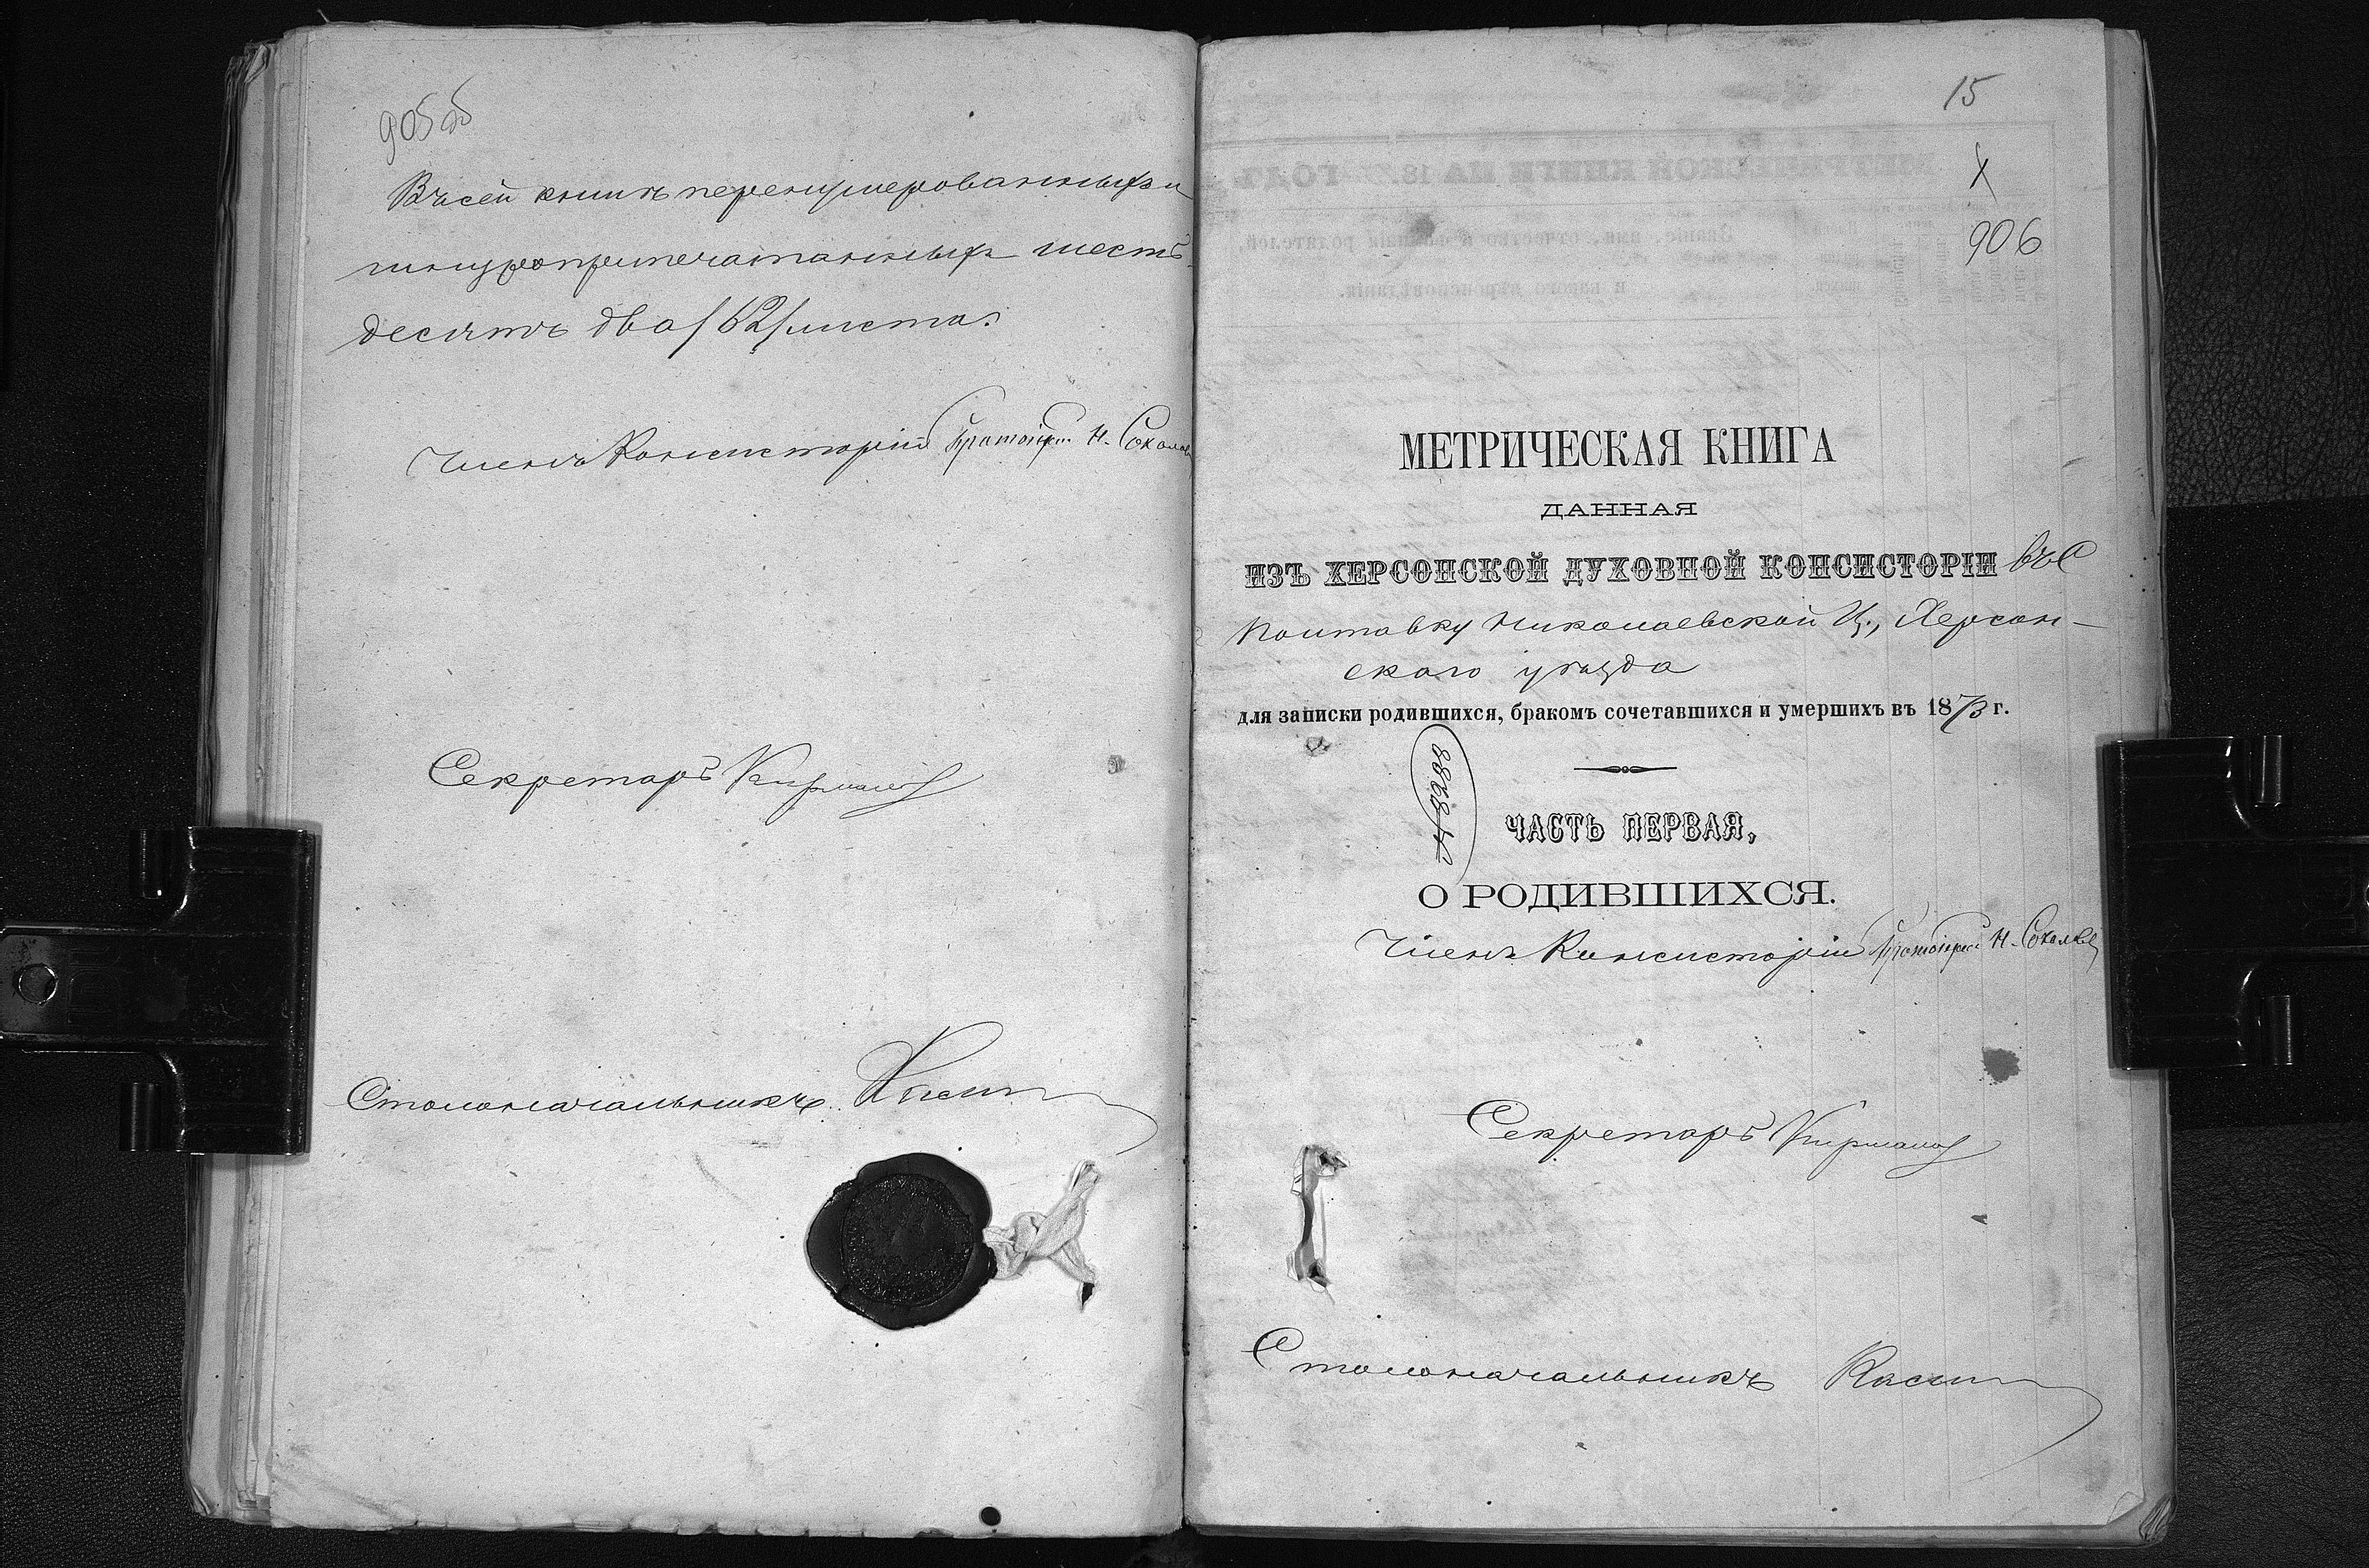 905 об
Въ сей книгѣ перенумерованныхъ и
шнуроприпечатанныхъ шесть-
десятъ два /62/ листа.
Членъ Консисторіи Протоіерей Н. Соколовъ
Секретарь
Столоначальникъ
15
906
МЕТРИЧЕСКАЯ КНИГА
ДАННАЯ
ИЗЪ ХЕРСОНСКОЙ ДУХОВНОЙ КОНСИСТОРІИ въ с
Полтавку Николаевской Ц., Херсон-
скаго уѣзда
для записки родившихся, бракомъ сочетавшихся и умершихъ въ 1873 г.
№ 8288
ЧАСТЬ ПЕРВАЯ,
О РОДИВШИХСЯ.
Членъ Консисторіи Протоіерей Н. Соколовъ
Секретарь
Столоначальникъ